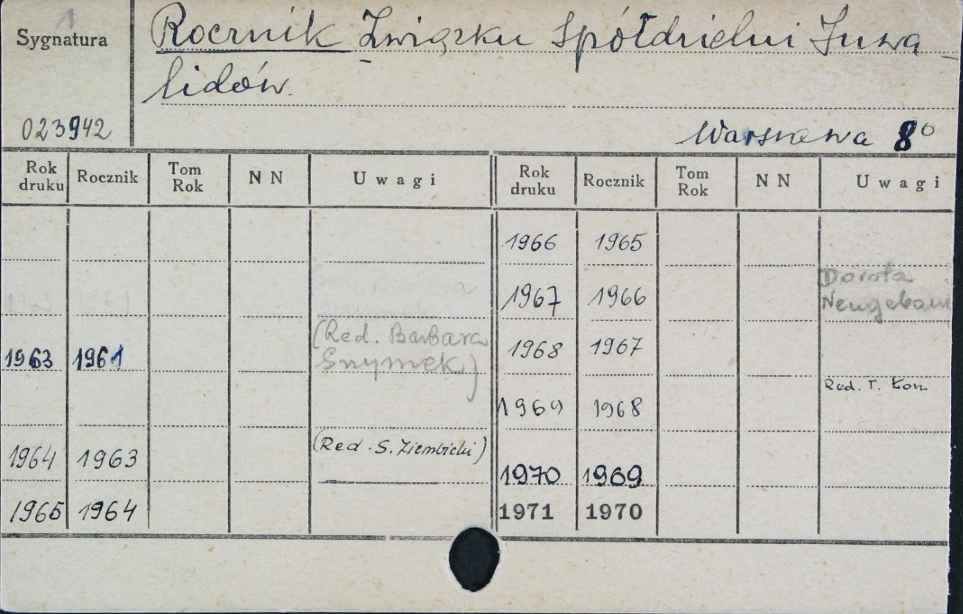 Sygnatura
Rocznik Związku Spółdzielni Inwa-
lidów.
023942
Warszawa 8°
Rok druku Rocznik Tom Rok NN Uwagi Rok druku Rocznik Tom Rok NN Uwagi
1966 1965
1967 1966 Dorota
Neugebau
1963 1961 (Red. Barbara
Szymek) 1968 1967
1969 1968 Red. T. Łon
1964 1963 (Red. S. Ziembicki) 1970 1969
1965 1964 1971 1970